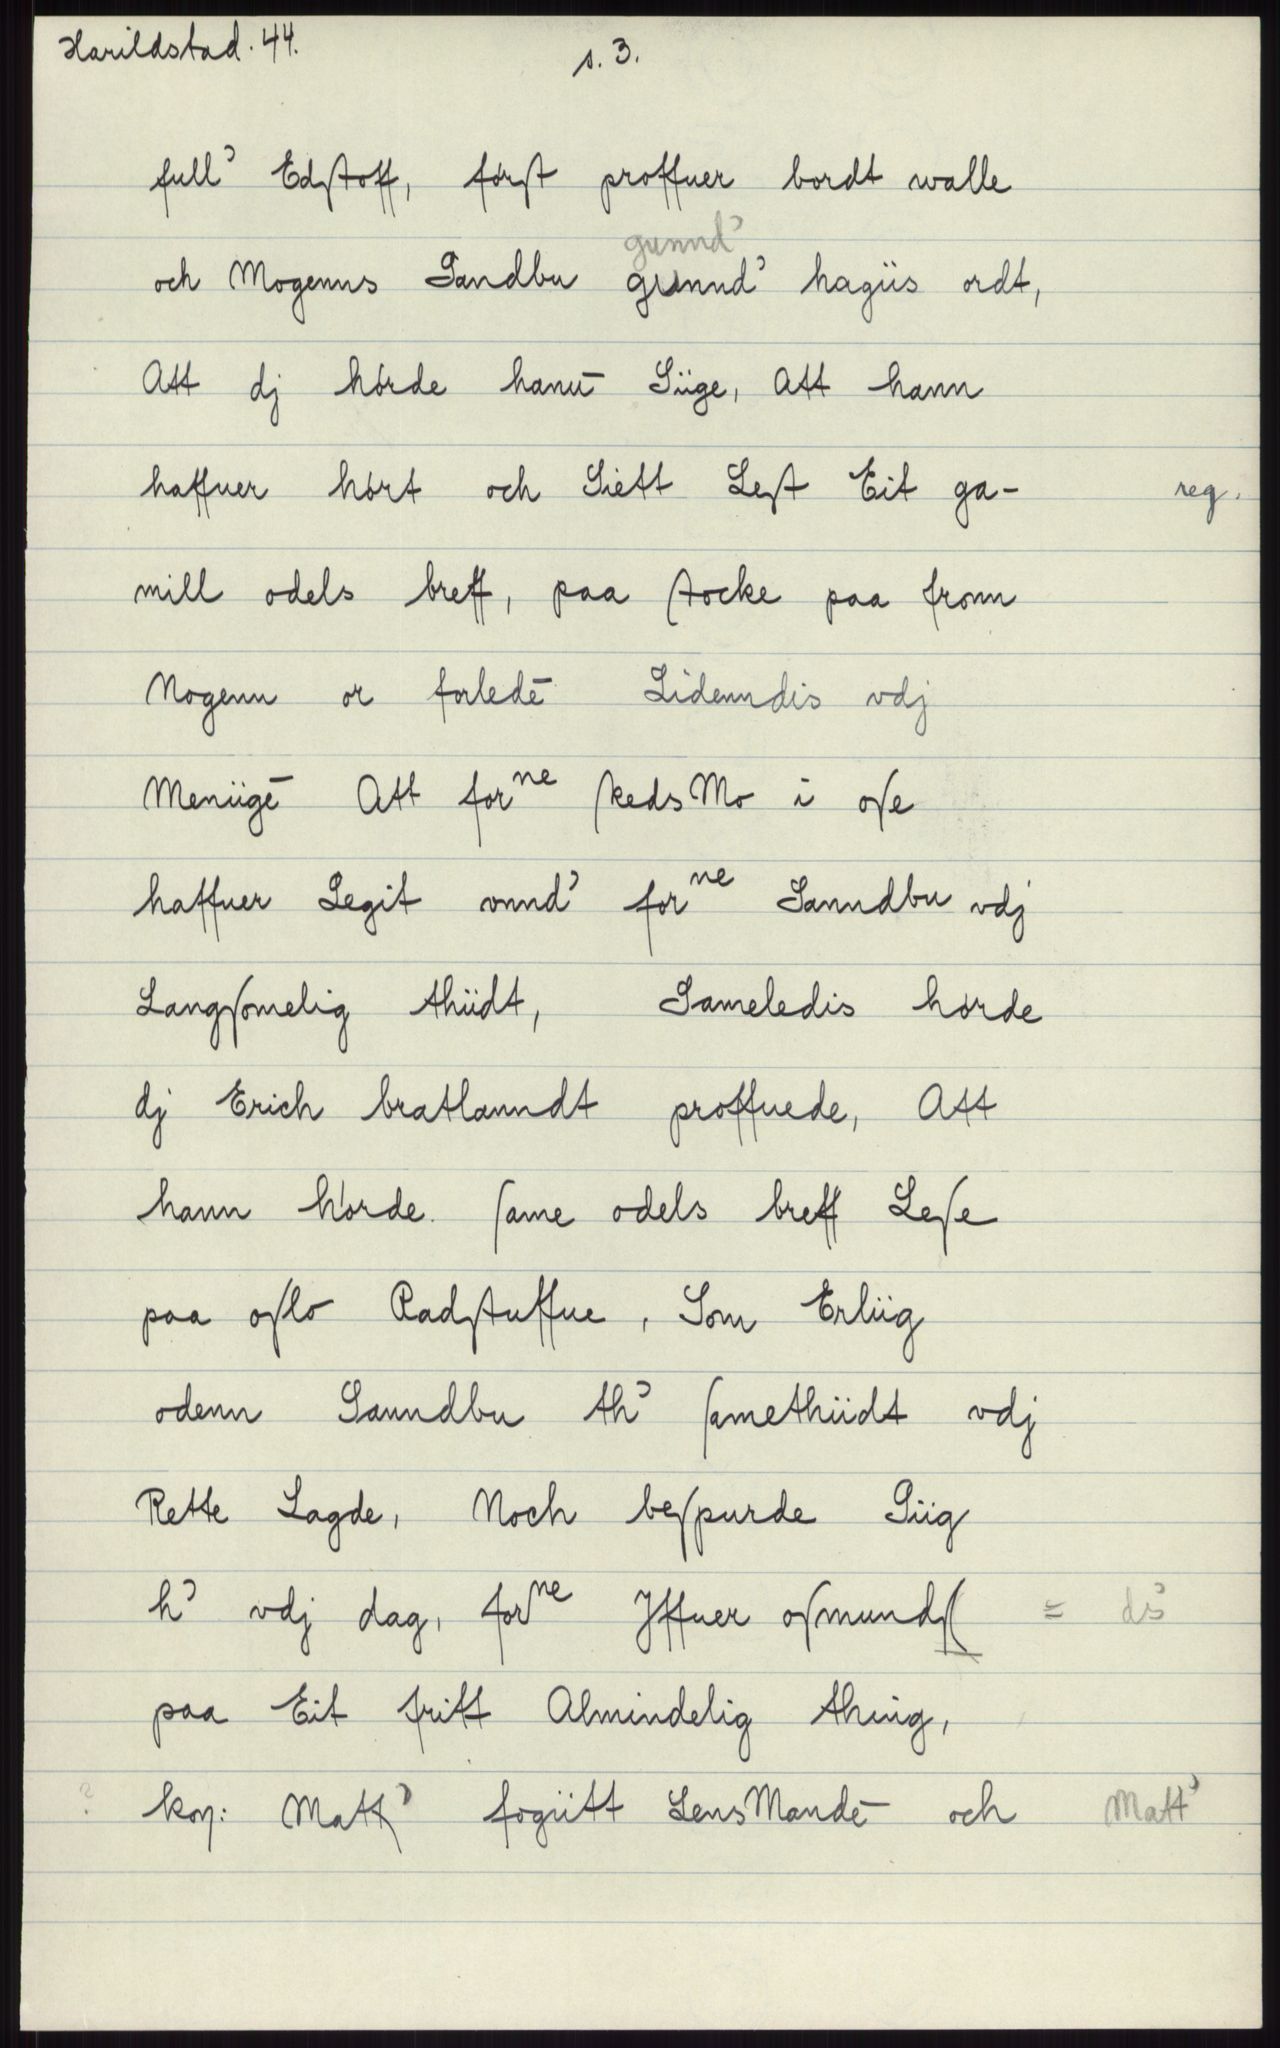 Harildstad. 44.
s. 3.
full' Edſtoff,førſt proffuer bordt walle
gunnd'
och Mogenns Sandbu grannd' hagiis ordt,
Att dj hørde hanū Siige, Att hann
haffuer hørt och Siett Leſt Eit ga- reg.
mill odels breff, paa ſtocke paa fronn
Nogenn or forledē Lidenndis vdj
Meniigē Att forne ſkeds Mo i oſe
haffuer Legit vnnd' forne Sanndbu vdj
Langſomelig thiidt, Sameledis hørde
dj Erich bratlanndt proffuede, Att
hann hørde ſame odels breff Leſe
paa oſlo Radſtuffue, Som Erliig
odenn Sanndbu th' ſamethiidt vdj
Rette Lagde, Noch beſpurde Siig
h' vdj dag, forne Yffuer oſmundſſ = ds'
paa Eit fritt Almindelig thing,
? koȝ: Matt' fogiitt LensMandē och Matt'